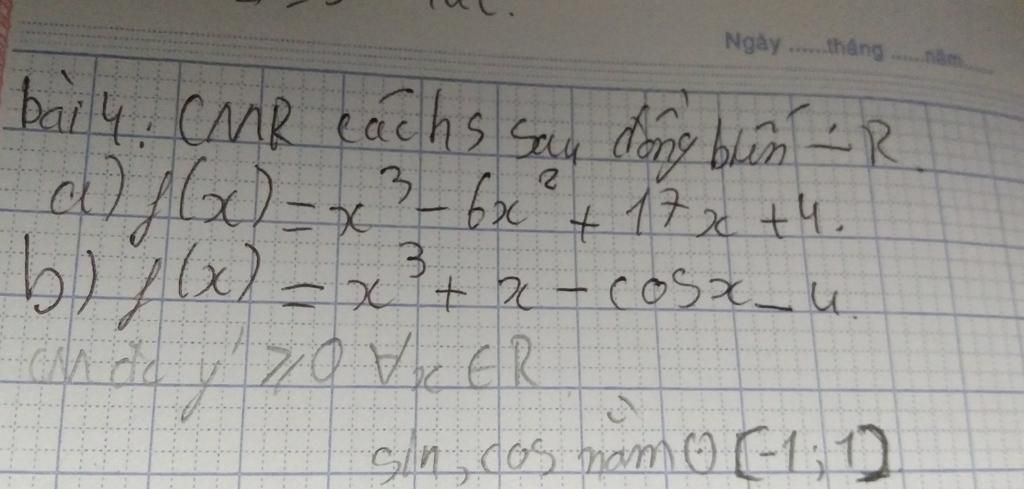 Ngày ......tháng ......năm
bài 4. CMR các hs sau đồng biến - R
a) f(x) = x³ - 6x² + 17x + 4.
b) f(x) = x³ + x - cosx - 4.
CM đc y' ≥ 0 ∀x ∈ R
sin, cos nằm [-1; 1]